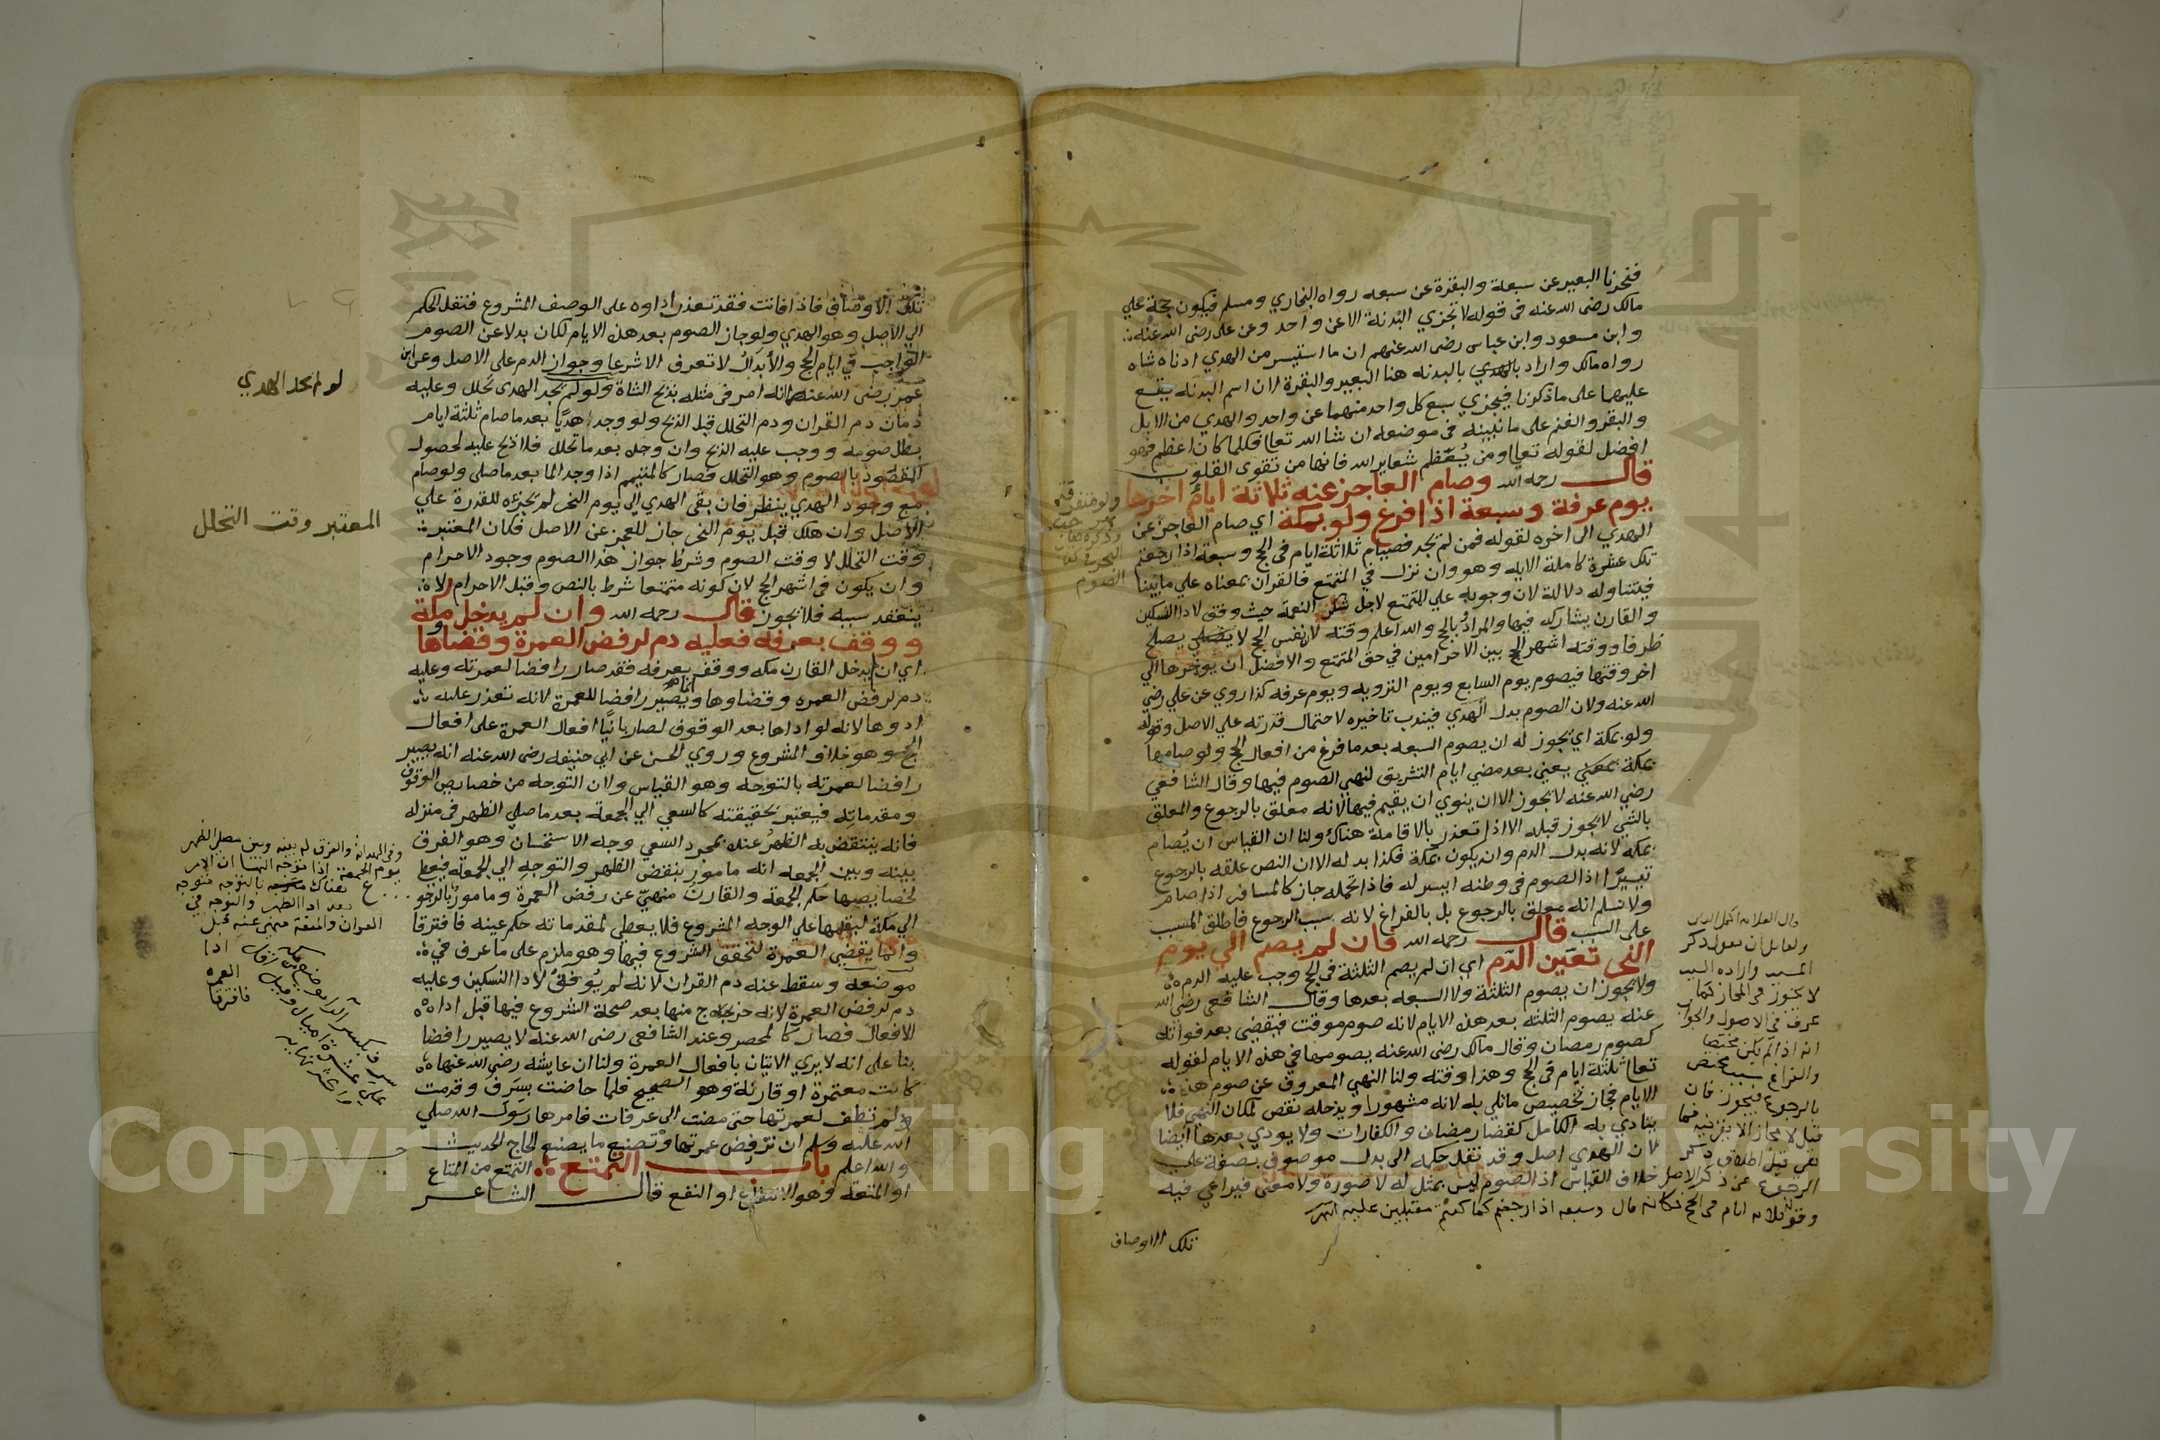 فنحرنا البعير عن سبعة والبقرة عن سبعه رواه البخاري ومسلم فيكون حجة علي
مالك رضى الله عنه فى قوله لا تجزي البدنة الا عن واحد وعن على رضى الله عنه
وابن مسعود وابن عباس رضى الله عنهم ان ما استيسر من الهدي ادناه شاه
رواه مالك واراد بالبدنه هنا البعير والبقرة اذ ان اسم البدنه يقع
عليهما على ما ذكرنا فيجزي سبع كل واحد منهما عن واحد والهدي من الابل
والبقر والغنم على ما نبينه فى موضعه ان شا الله تعالى فكلما كان اعظم فهو
افضل لقوله تعالى ومن يعظم شعاير الله فانها من تقوى القلوب
قال رحمه الله وصام العاجز عنه ثلاثة ايام اخرها
يوم عرفة وسبعة اذا فرغ ولو بمكة اي صام العاجز عن
الهدي الى اخره لقوله فمن لم يجد فصيام ثلاثة ايام فى الحج وسبعة اذا رجعتم
تلك عشرة كاملة الايه وهو وان نزل في المتمتع فالقران بمعناه علي ما بينا
فيتناوله دلالة لان وجوبه علي المتمتع لاجل شكر النعمة حيث وفق لادا النسكين
والقارن يشاركه فيها والمراد بالحج والله اعلم وقته لان نفس الحج لا يصلح
ظرفا ووقته اشهر الحج بين الاحرامين في حق المتمتع والافضل ان يؤخرها الي
اخر وقتها فيصوم يوم السابع ويوم التروية ويوم عرفه كذا روي عن علي رضي
الله عنه ولان الصوم بدل الهدي فيندب تاخيره لاحتمال قدرته علي الاصل وقوله
ولو بمكة اي يجوز له ان يصوم السبعه بعد ما فرغ من افعال الحج ولو صامها
بمكة يعني بعد مضي ايام التشريق لنهي الصوم فيها وقال الشافعي
رضي الله عنه لا يجوز الا ان ينوي ان يقيم فيها لانه معلق بالرجوع والمعلق
بالشي لا يجوز قبله الا اذا تعذر بالاقامة هناك ولنا ان القياس ان يصام
بمكه لانه بدل الدم وان يكون بمكة فكذا بدله الا ان النص علقه بالرجوع
تيسيرا اذ الصوم فى وطنه ايسر له فاذا تحمله جاز كالمسافر اذا صام
ولا نسلم انه معلق بالرجوع بل بالفراغ لانه سبب الرجوع فاطلق المسبب
على السبب قال رحمه الله فان لم يصم الي يوم
النحر تعين الدم اي ان لم يصم الثلثة في الحج وجب عليه الدم
ولا يجوز ان يصوم الثلثة ولا السبعه بعدها وقال الشافعى رضى الله
عنه يصوم الثلثه بعد هذه الايام لانه صوم موقت فيقضي بعد فواته
كصوم رمضان وقال مالك رضى الله عنه يصومها في هذه الايام لقوله
تعالى ثلثة ايام فى الحج وهذا وقته ولنا النهي المعروف عن صوم هذه
الايام فجاز تخصيص ما تلي به لانه مشهور او يدخله نقص لمكان النهي فلا
يتادي به الكامل كقضا رمضان والكفارات ولا يودي بعدها ايضا
لان الهدي اصل وقد نقل حكمه الى بدل موصوف بصفة علي
خلاف القياس اذ الصوم ليس بمثل له لا صورة ولا معنى فيراعي فيه
تلك الاوصاف
قال العلامه اكمل الدين
ولقايل ان يقول ذكر
المسبب وارادة السبب
لا يجوز فى المجاز كما
عرف فى الاصول والجواب
انه اذا لم يكن مختصا
والفراغ سبب مختص
بالرجوع فيجوز فان
قيل لا مجاز الا بقرينه فما
هي قيل اطلاق ذكر
الرجوع عن ذكر الاصل
تلك الاوصاف فاذا فاتت فقد تعذر اداوه على الوصف المشروع فنقل الحكم
الي الاصل وهو الهدي ولو جاز الصوم بعد هذه الايام لكان بدلا عن الصوم
الواجب في ايام الحج والأبدال لا تعرف الا شرعا وجواز الدم على الاصل وعن ابن
عمر رضى الله عنهما انه امر فى مثله بذبح الشاة ولو لم يجد الهدى تحلل وعليه
دمان دم القران ودم التحلل قبل الذبح ولو وجد هديا بعد ما صام ثلثة ايام
بطل صومه ووجب عليه الذبح وان وجده بعد ما تحلل فلا ذبح عليه لحصول
المقصود بالصوم وهو التحلل فصار كالمتيمم اذا وجد الما بعد ما صلى ولو صام
مع وجود الهدي ينظر فان بقى الهدي الى يوم النحر لم تجزه للقدرة علي
الاصل وان هلك قبل يوم النحر جاز للعجز عن الاصل فكان المعتبر
وقت التحلل لا وقت الصوم وشرط جواز هذا الصوم وجود الاحرام
وان يكون فى اشهر الحج لان كونه متمتعا شرط بالنص وقبل الاحرام لا
ينعقد سببه فلا يجوز قال رحمه الله وان لم يدخل مكة
ووقف بعرفه فعليه دم لرفض العمرة وقضاها
اي ان لم يدخل القارن مكه ووقف بعرفه فقد صار رافضا لعمرته وعليه
دم لرفض العمره وقضاوها ويصير رافضا للعمرة لانه تعذر عليه
ادوها لانه لو اداها بعد الوقوف لصار بانيا افعال العمرة على افعال
الحج وهو خلاف المشروع وروي الحسن عن ابي حنيفه رضى الله عنه انه يصير
رافضا لعمرته بالتوجه وهو القياس ولان التوجه من خصايص الوقوف
ومقدماته فيعتبر بحقيقته كالسعي الي الجمعة بعد ما صلي الظهر فى منزله
فانه ينتقض به الظهر عنده بمجرد السعي وجه الاستحسان وهو الفرق
بينه وبين الجمعه انه مامور بنقض الظهر والتوجه الي الجمعه فيعطى
لخصايصها حكم الجمعة والقارن منهي عن رفض العمرة ومامور بالرجوع
الي مكة ليقيمها علي الوجه المشروع فلا يعطي لمقدماته حكم عينه فافترقا
وانما يقضي العمرة لتحقق الشروع فيها وهو ملزم على ما عرف في
موضعه وسقط عنه دم القران لانه لم يوفق لادا النسكين وعليه
دم لرفض العمرة لانه خرج منها بعد صحة الشروع فيها قبل اداه
الافعال فصار كالمحصر وعند الشافعى رضى الله عنه لا يصير رافضا
بنا على انه لا يري الاتيان بافعال العمرة ولنا ان عايشه رضى الله عنها
كانت معتمرة او قارنة وهو الصحيح فلما حاضت بسرف وقدمت
ولم تطف لعمرتها حتى مضت الى عرفات فامرها رسول الله صلي
الله عليه وسلم ان ترفض عمرتها وتصنع ما يصنع الحاج الحديث
والله اعلم باب التمتع التمتع من المتاع
او المتعة وهو الانتفاع او النفع قال الشاعر
لو لم يجد الهدي
المعتبر وقت التحلل
Copyright © King Saud University